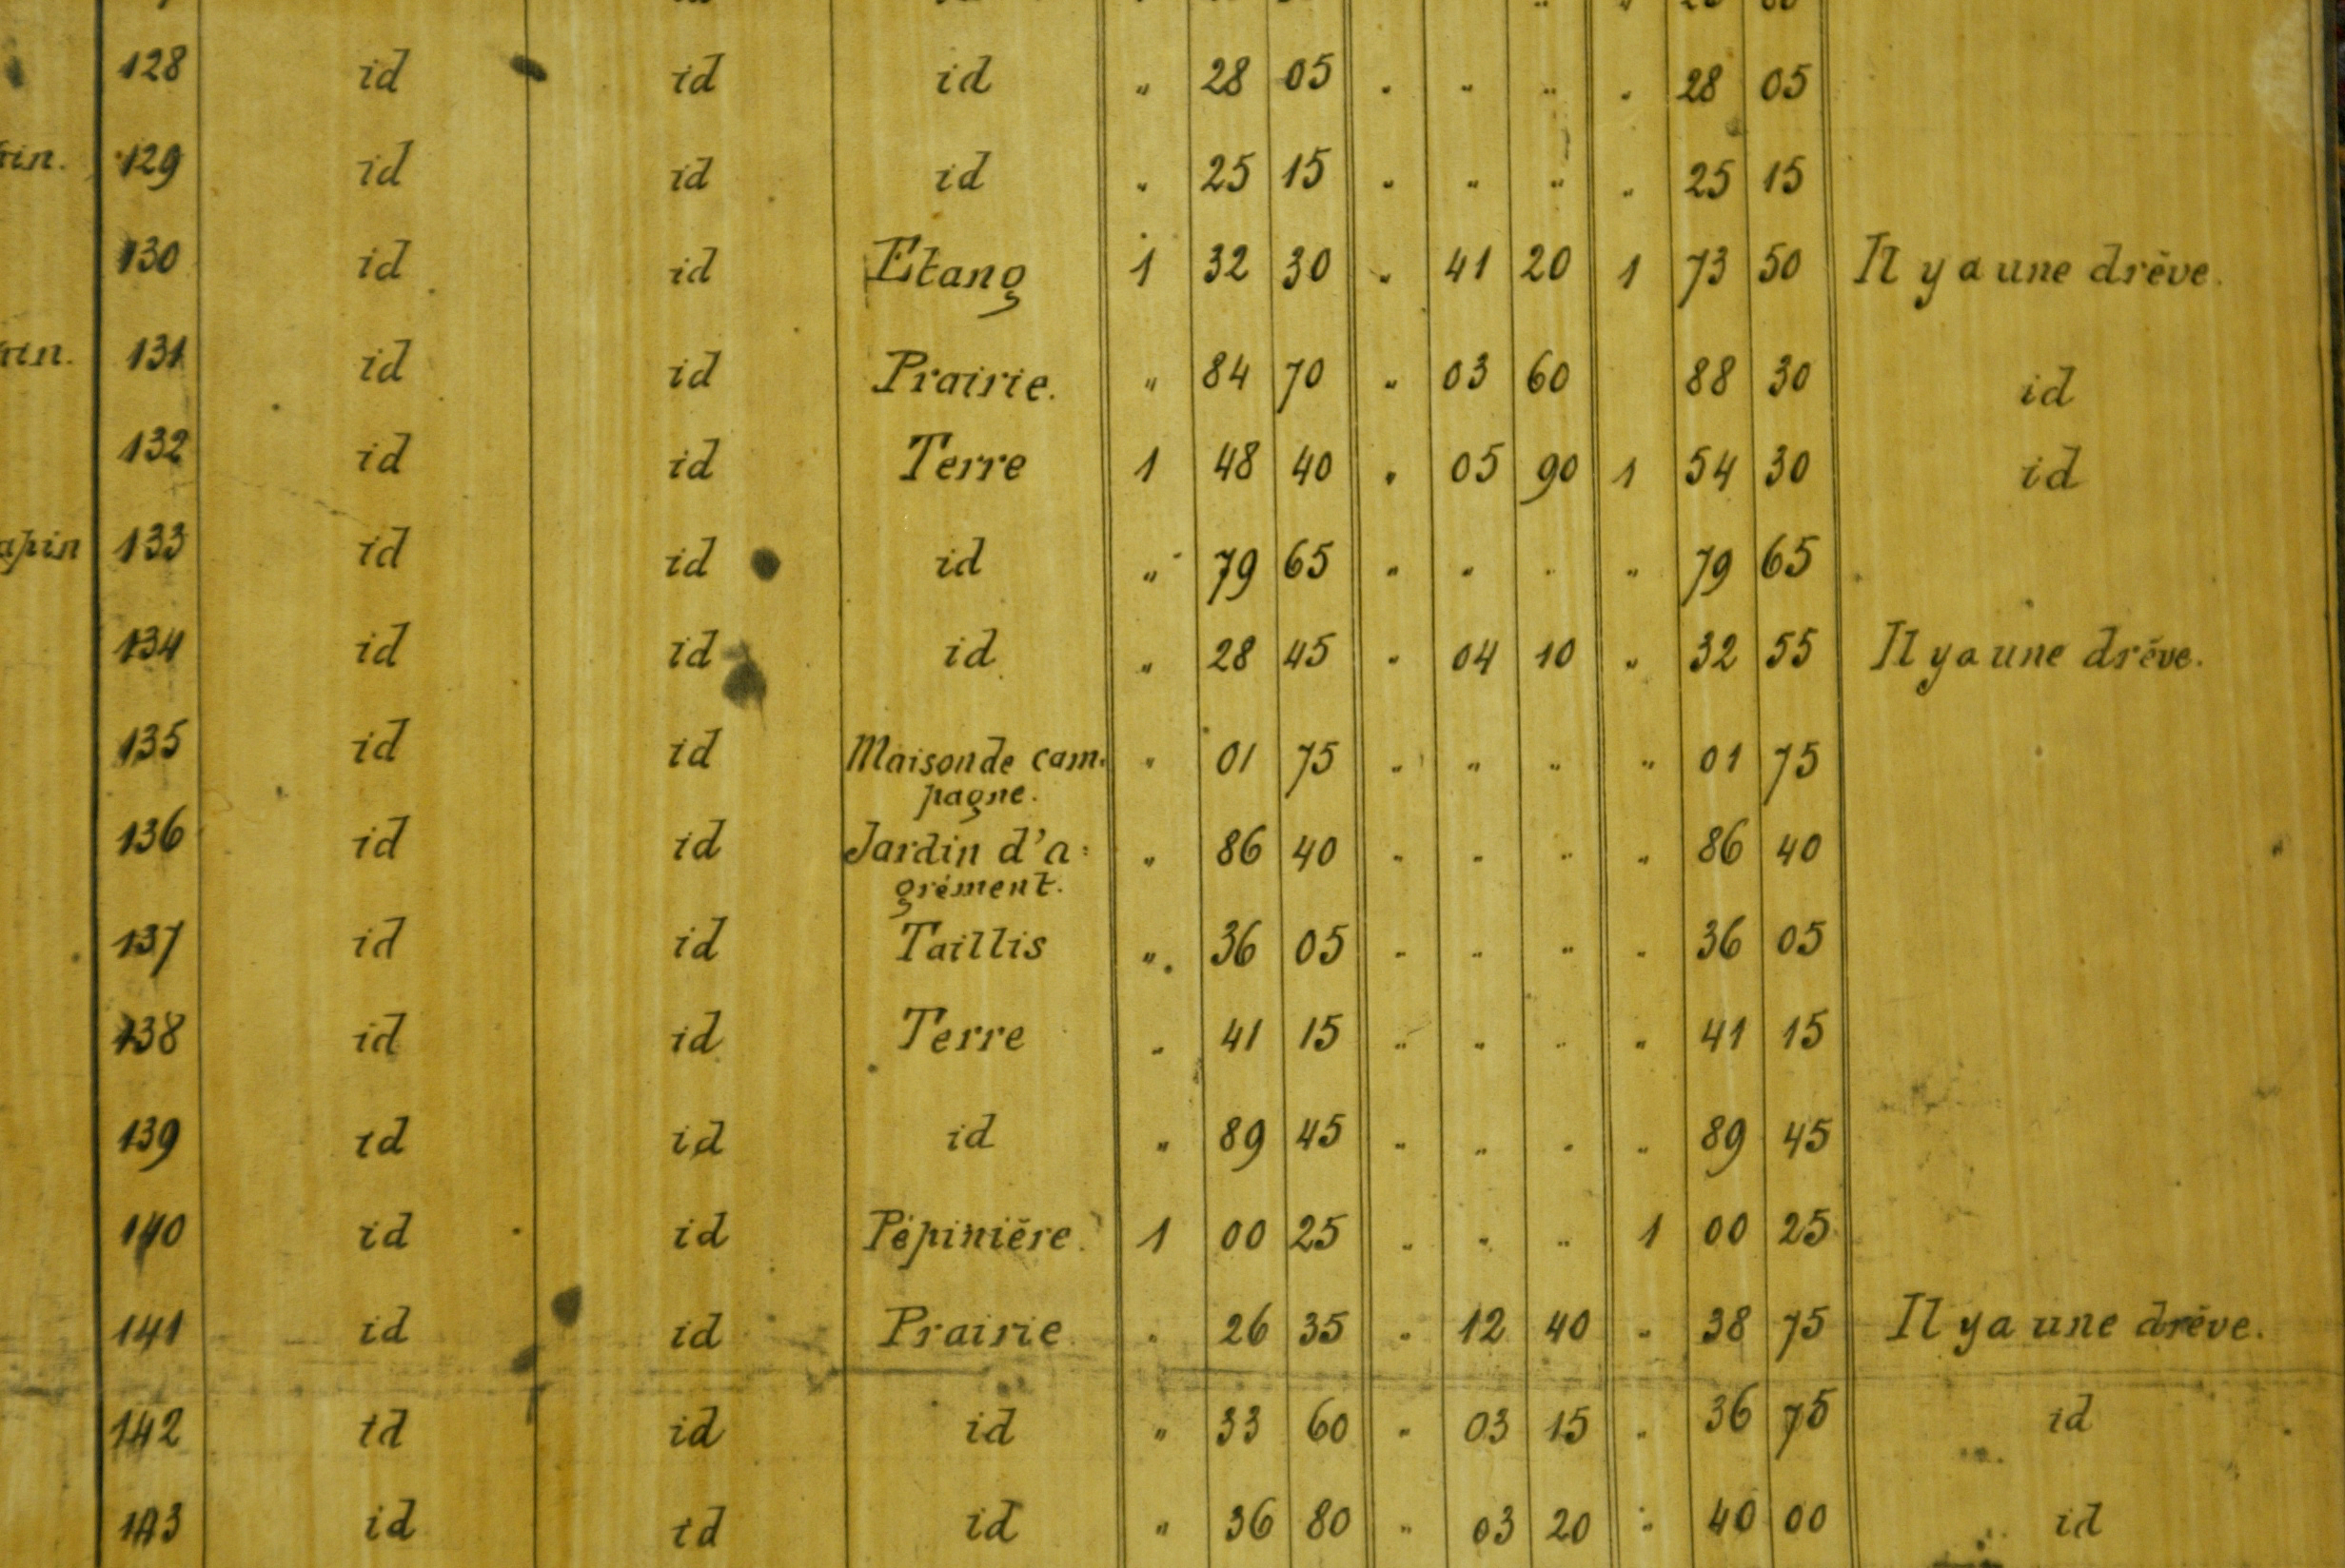 128 id id id " 28 05 " " " " 28 05
129 id id id " 25 15 " " " " 25 15
130 id id Etang 1 32 30 " 41 20 1 73 50 Il y a une drève.
131 id id Prairie. " 84 70 " 03 60 88 30 id
132 id id Terre 1 48 40 " 05 90 1 54 30 id
apin 133 id id id " 79 65 " " " " 79 65
134 id id id " 28 45 " 04 10 " 32 55 Il y a une drève.
135 id id Maison de cam. " 01 75 " " " " 01 75
pagne.
136 id id Jardin d'a: " 86 40 " " " " 86 40
grément.
137 id id Taillis " 36 05 " " " " 36 05
138 id id Terre " 41 15 " " " " 41 15
139 id id id " 89 45 " " " " 89 45
140 id id Pépinière. 1 00 25 " " " 1 00 25
141 id id Prairie. " 26 35 " 12 40 " 38 75 Il y a une drève.
142 id id id " 33 60 " 03 15 " 36 75 id
143 id id id " 36 80 " 03 20 " 40 00 id